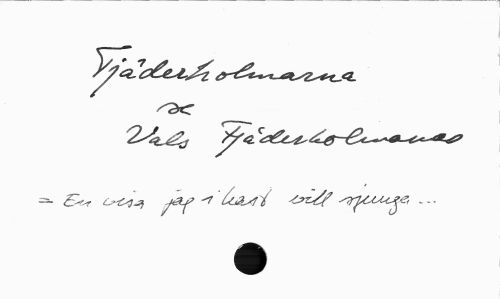 Fjäderholmarna
se
Vals Fjäderholmarnas
= En visa jag i hast vill sjunga ...